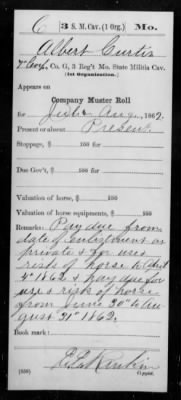 C 3 S. M. Cav. (1 Org.) Mo.
Albert Curtis
Co. G, 3 Reg't Mo. State Militia Cav.
(1st Organization.)
Appears on
Company Muster Roll
for July & Aug., 1862.
Present or absent Present.
Stoppage, $ 100 for
Due Gov't, $ 100 for
Valuation of horse, $ 100
Valuation of horse equipments, $ 100
Remarks: Pay due from
date of enlistment as
private & for use &
risk of horse to
4" 1862 & pay due for
use & risk of horse
from June 30" to Au-
gust 31" 1862.
Book mark:
(359) Copyist.